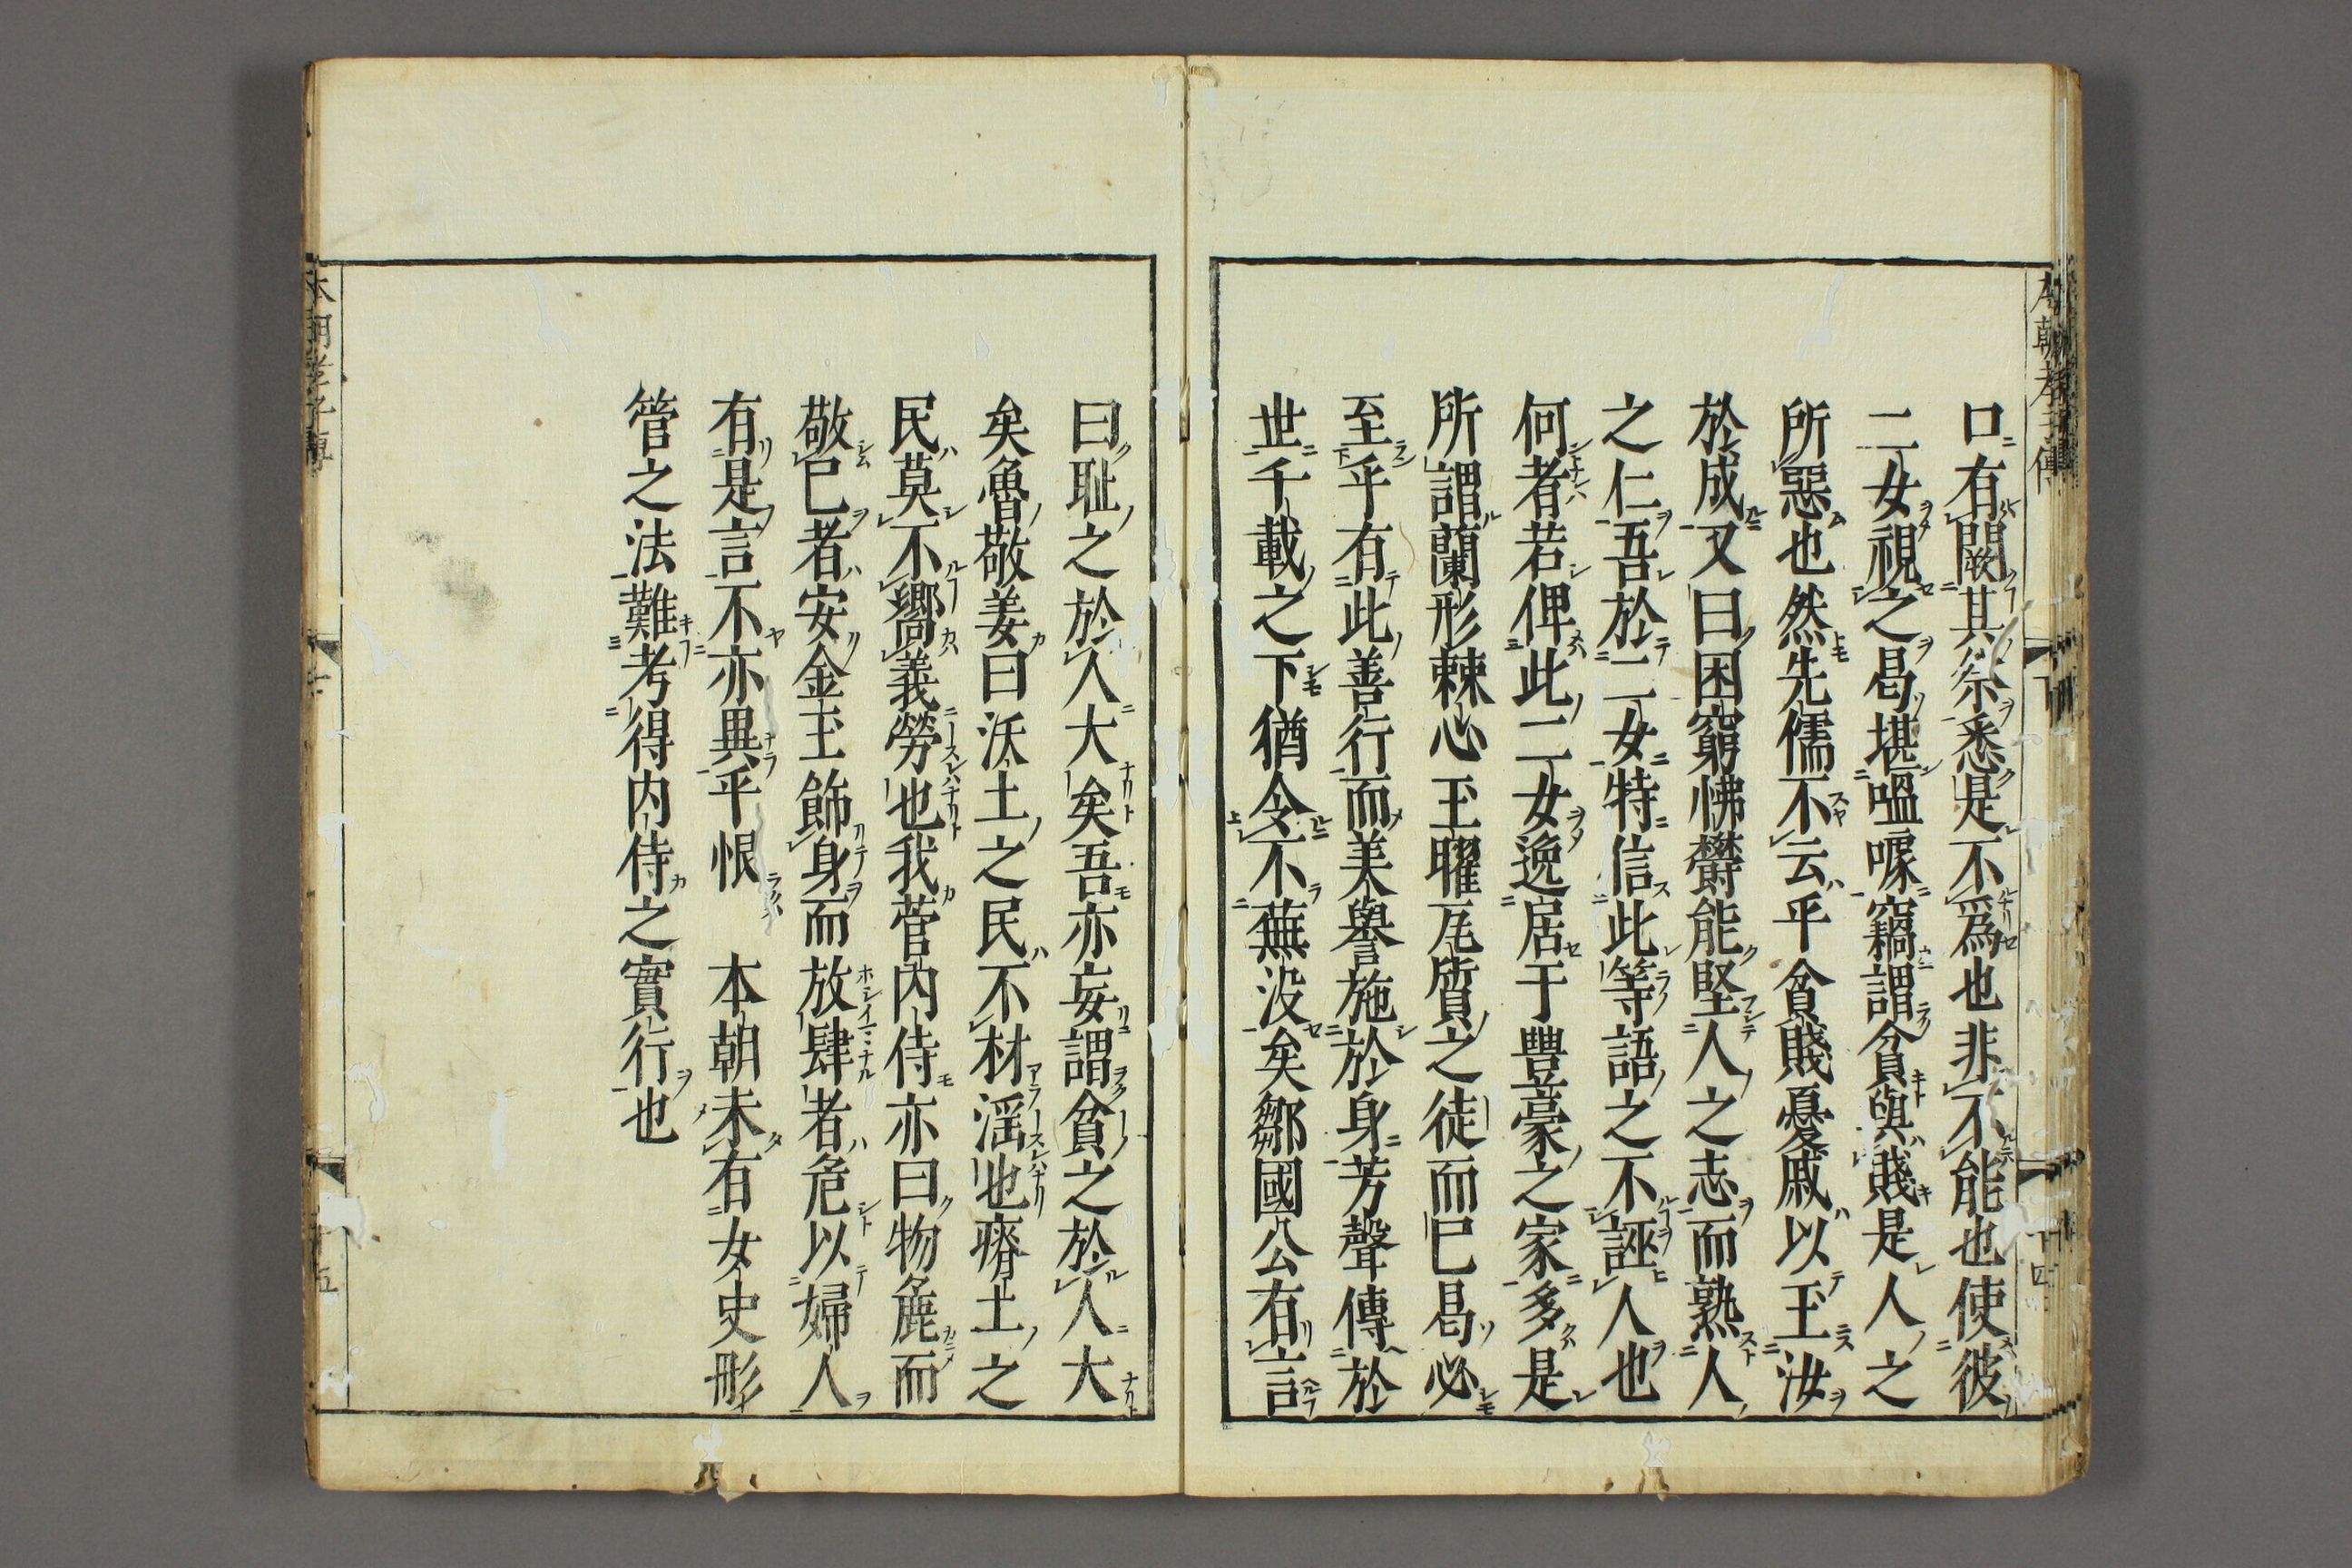 口有闕其祭悉是不爲也非不能也使彼
二女視之曷堪嗢噱竊謂貧與賤是人之
所惡也然先儒不云乎貧賤憂戚以玉汝
於成又曰困窮怫欝能堅人之志而熟人
之仁吾於二女特信此等語之不誣人也
何者若俾此二女逸居于豐豪之家多是
所謂蘭形棘心玉曜瓦質之徒而已曷必
至乎有此善行而美譽施於身芳聲傳於
世千載之下猶令不蕪没矣鄒國公有言
曰耻之於人大矣吾亦妄謂貧之於人大
矣魯敬姜曰沃土之民不材滛也瘠土之
民莫不嚮義勞也我菅内侍亦曰物麁而
敬已者安金玉飾身而放肆者危以婦人
有是言不亦異乎恨 本朝未有女史彤
管之法難考得内侍之實行也
本朝孝子傳